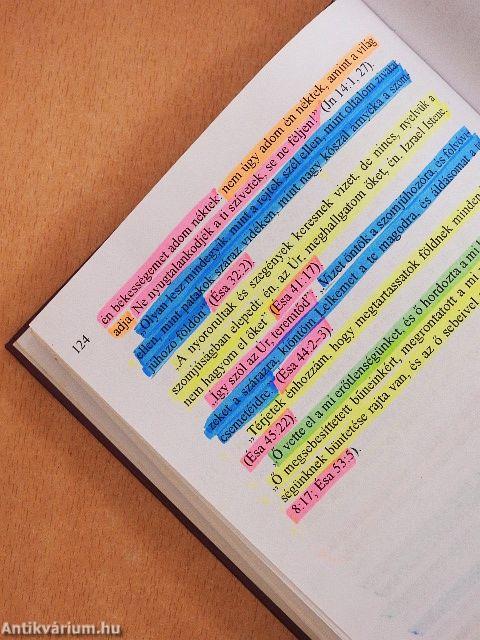 én békességemet adom néktek; nem úgy adom én néktek, amint a világ
adja. Ne nyugtalankodjék a ti szívetek, se ne féljen!" (Jn 14:1, 27).
„Olyan lesz mindegyik, mint a rejtek szél ellen, s mint oltalom zivatar
ellen, mint patakok száraz vidéken, mint nagy kőszál árnyéka a szom-
júhozó földön" (Ésa 32:2)
„A nyomorultak és szegények keresnek vizet, de nincs, nyelvük a
szomjúságban elepedt: én, az Úr, meghallgatom őket, én, Izrael Istene,
nem hagyom el őket" (Ésa 41:17).
„Így szól az Úr, teremtőd", „Vizet öntök a szomjúhozóra és folyóvi-
zeket a szárazra; kiöntöm Lelkemet a te magodra, és áldásomat a
csemetéidre" (Ésa 44:2–3)
„Térjetek énhozzám, hogy megtartassatok földnek minden
(Ésa 45:22).
„Ő vette el a mi erőtlenségünket, és ő hordozta a mi
„Ő megsebesíttetett bűneinkért, megrontatott a mi
ségünknek büntetése rajta van, és az ő sebeivel
8:17; Ésa 53:5).
124
Antikvárium.hu